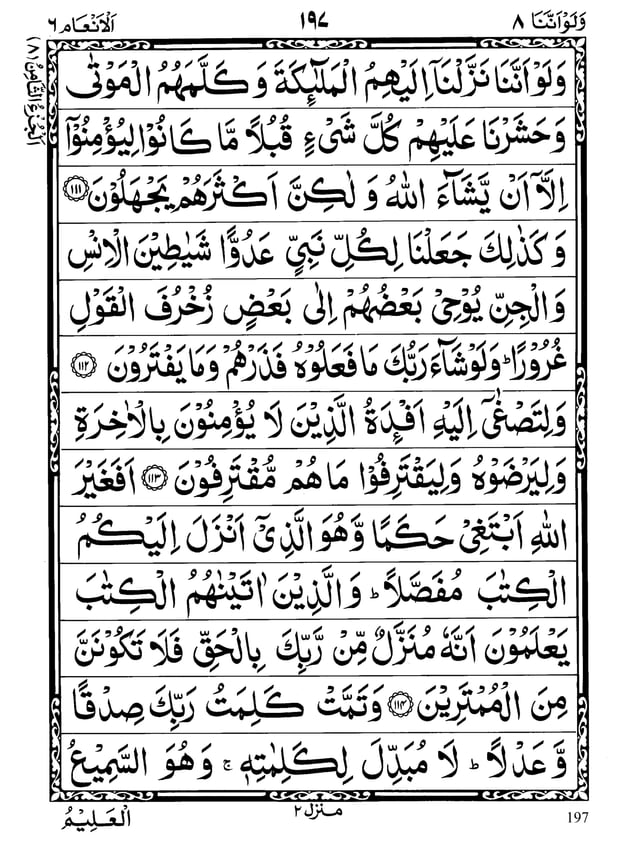 وَلَوْاَنَّنَا ٨
١٩٧
اَلْاَنْعَام ٦
اَلْجُزْءُ الثَّامِنُ (٨)
وَلَوْ اَنَّنَا نَزَّلْنَاۤ اِلَيْهِمُ الْمَلٰٓئِكَةَ وَ كَلَّمَهُمُ الْمَوْتٰى
وَحَشَرْنَا عَلَيْهِمْ كُلَّ شَىْءٍ قُبُلًا مَّا كَانُوْا لِيُؤْمِنُوْۤا
اِلَّاۤ اَنْ يَّشَآءَ اللّٰهُ وَ لٰكِنَّ اَكْثَرَهُمْ يَجْهَلُوْنَ ﴿١١١﴾
وَ كَذٰلِكَ جَعَلْنَا لِكُلِّ نَبِىٍّ عَدُوًّا شَيٰطِيْنَ الْاِنْسِ
وَ الْجِنِّ يُوْحِىْ بَعْضُهُمْ اِلٰى بَعْضٍ زُخْرُفَ الْقَوْلِ
غُرُوْرًا ؕ وَلَوْ شَآءَ رَبُّكَ مَا فَعَلُوْهُ فَذَرْهُمْ وَمَا يَفْتَرُوْنَ ﴿١١٢﴾
وَلِتَصْغٰٓى اِلَيْهِ اَفْـِٕدَةُ الَّذِيْنَ لَا يُؤْمِنُوْنَ بِالْاٰخِرَةِ
وَلِيَرْضَوْهُ وَلِيَقْتَرِفُوْا مَا هُمْ مُّقْتَرِفُوْنَ ﴿١١٣﴾ اَفَغَيْرَ
اللّٰهِ اَبْتَغِىْ حَكَمًا وَّهُوَ الَّذِىْۤ اَنْزَلَ اِلَيْكُمُ
الْكِتٰبَ مُفَصَّلًا ؕ وَالَّذِيْنَ اٰتَيْنٰهُمُ الْكِتٰبَ
يَعْلَمُوْنَ اَنَّهٗ مُنَزَّلٌ مِّنْ رَّبِّكَ بِالْحَقِّ فَلَا تَكُوْنَنَّ
مِنَ الْمُمْتَرِيْنَ ﴿١١٤﴾ وَتَمَّتْ كَلِمَتُ رَبِّكَ صِدْقًا
وَّ عَدْلًا ؕ لَا مُبَدِّلَ لِكَلِمٰتِهٖ ۚ وَهُوَ السَّمِيْعُ
الْعَلِيْمُ
منزل ٢
197